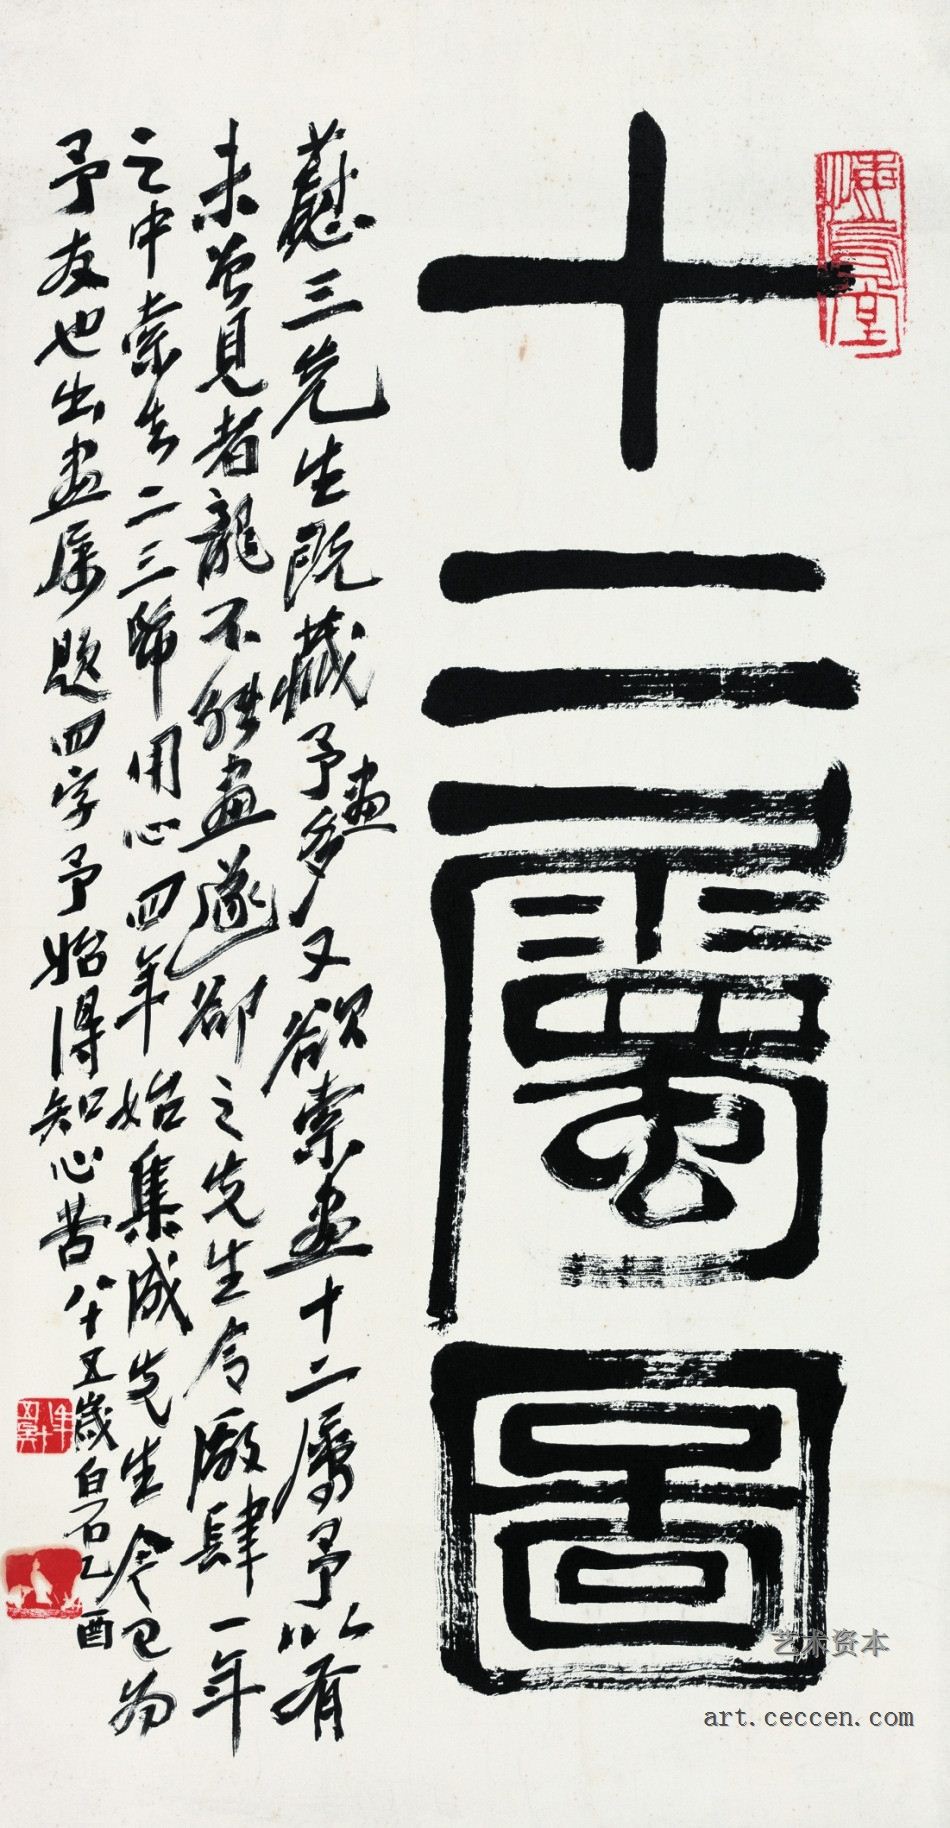 十二屬圖
蔭三先生既藏予畫多又欲索畫十二屬予以有
未曾見者龍不能畫遂卻之先生令廠肆一年
之中索去二三幀用心四年始集成先生今已為
予友也出畫屬題四字予始得知心苦八十五歲白石乙酉
艺术资本
art.ceccen.com